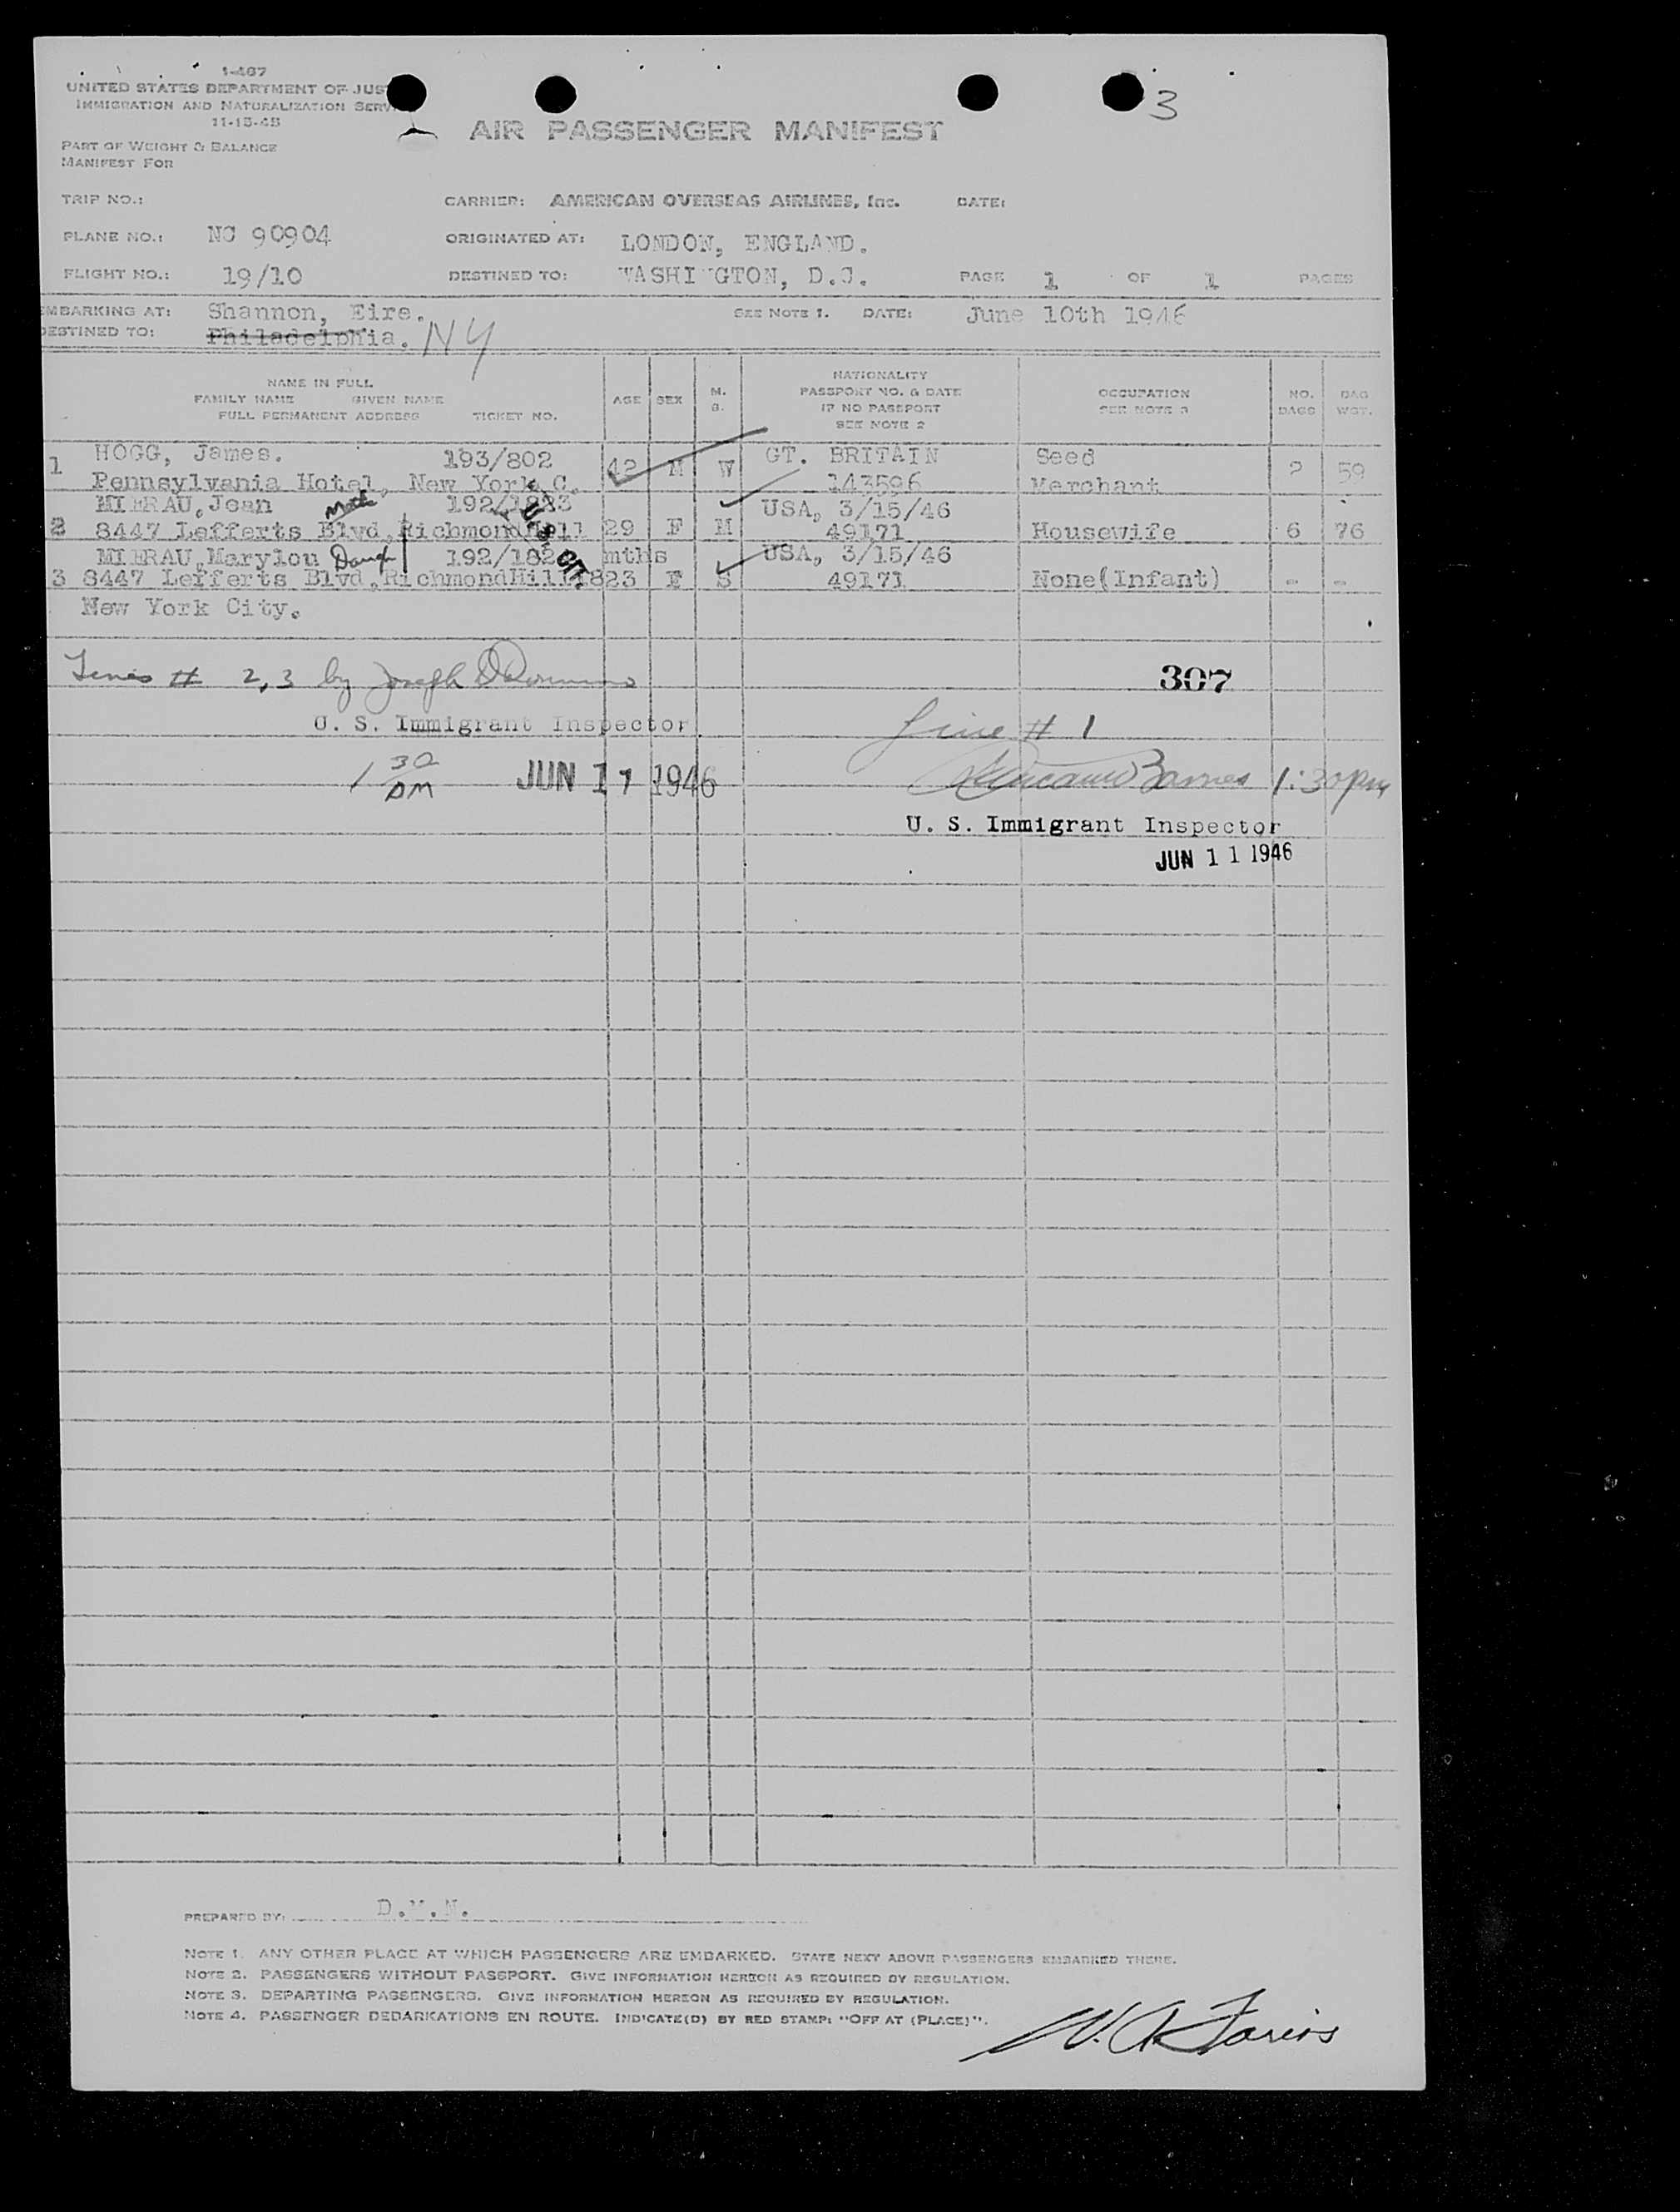 3
1-407
UNITED STATES DEPARTMENT OF JUS
IMMIGRATION AND NATURALIZATION SERV
11-15-45
AIR PASSENGER MANIFEST
PART OF WEIGHT & BALANCE
MANIFEST FOR
TRIP NO.: CARRIER: AMERICAN OVERSEAS AIRLINES, Inc. DATE:
PLANE NO.: NC 90904 ORIGINATED AT: LONDON, ENGLAND.
FLIGHT NO.: 19/10 DESTINED TO: WASHINGTON, D.C. PAGE 1 OF 1 PAGES
EMBARKING AT: Shannon, Eire. SEE NOTE 1. DATE: June 10th 1946
DESTINED TO: Philadelphia. NY
NAME IN FULL
FAMILY NAME GIVEN NAME
FULL PERMANENT ADDRESS TICKET NO. AGE SEX M. S. NATIONALITY
PASSPORT NO. & DATE
IF NO PASSPORT
SEE NOTE 2 OCCUPATION
SEE NOTE 3 NO. BAGS BAG WGT.
1 HOGG, James. 193/802 42 M W GT. BRITAIN Seed 2 59
Pennsylvania Hotel, New York C. 143596 Merchant
MIERAU, Jean Moth 192/1823 USA, 3/15/46
2 8447 Lefferts Blvd, Richmond Hill 29 F M 49171 Housewife 6 76
U.S. CIT.
MIERAU, Marylou Daugh 192/182 mths USA, 3/15/46
3 8447 Lefferts Blvd, RichmondHill 1823 F S 49171 None(Infant) - -
New York City.
Lines # 2,3 by Joseph
307
U. S. Immigrant Inspector
Line # 1
1 30 PM JUN 11 1946
Barnes 1:30pm
U. S. Immigrant Inspector
JUN 11 1946
PREPARED BY: D.M.N.
NOTE 1. ANY OTHER PLACE AT WHICH PASSENGERS ARE EMBARKED. STATE NEXT ABOVE PASSENGERS EMBARKED THERE.
NOTE 2. PASSENGERS WITHOUT PASSPORT. GIVE INFORMATION HEREON AS REQUIRED BY REGULATION.
NOTE 3. DEPARTING PASSENGERS. GIVE INFORMATION HEREON AS REQUIRED BY REGULATION.
NOTE 4. PASSENGER DEBARKATIONS EN ROUTE. INDICATE(D) BY RED STAMP: "OFF AT (PLACE)".
W. A. Farins